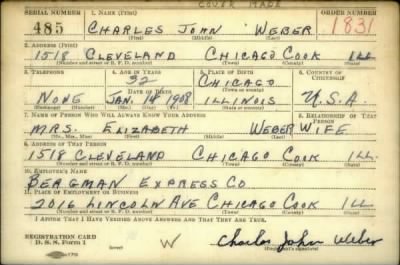 COVER MADE
SERIAL NUMBER 1. NAME (Print) ORDER NUMBER
485 CHARLES JOHN WEBER 1831
(First) (Middle) (Last)
2. ADDRESS (Print)
1518 CLEVELAND CHICAGO COOK ILL
(Number and street or R. F. D. number) (Town) (County) (State)
3. TELEPHONE 4. AGE IN YEARS 5. PLACE OF BIRTH 6. COUNTRY OF CITIZENSHIP
32 CHICAGO
DATE OF BIRTH (Town or county)
NONE JAN. 14 1908 ILLINOIS U.S.A.
(Mo.) (Day) (Yr.) (State or country)
7. NAME OF PERSON WHO WILL ALWAYS KNOW YOUR ADDRESS 8. RELATIONSHIP OF THAT PERSON
MRS. ELIZABETH WEBER WIFE
(Mr., Mrs., Miss) (First) (Middle) (Last)
9. ADDRESS OF THAT PERSON
1518 CLEVELAND CHICAGO COOK ILL.
(Number and street or R. F. D. number) (Town) (County) (State)
10. EMPLOYER'S NAME
BERGMAN EXPRESS CO
11. PLACE OF EMPLOYMENT OR BUSINESS
2016 LINCOLN AVE CHICAGO COOK ILL
(Number and street or R. F. D. number) (Town) (County) (State)
I AFFIRM THAT I HAVE VERIFIED ABOVE ANSWERS AND THAT THEY ARE TRUE.
REGISTRATION CARD
D. S. S. Form 1 W Charles John Weber